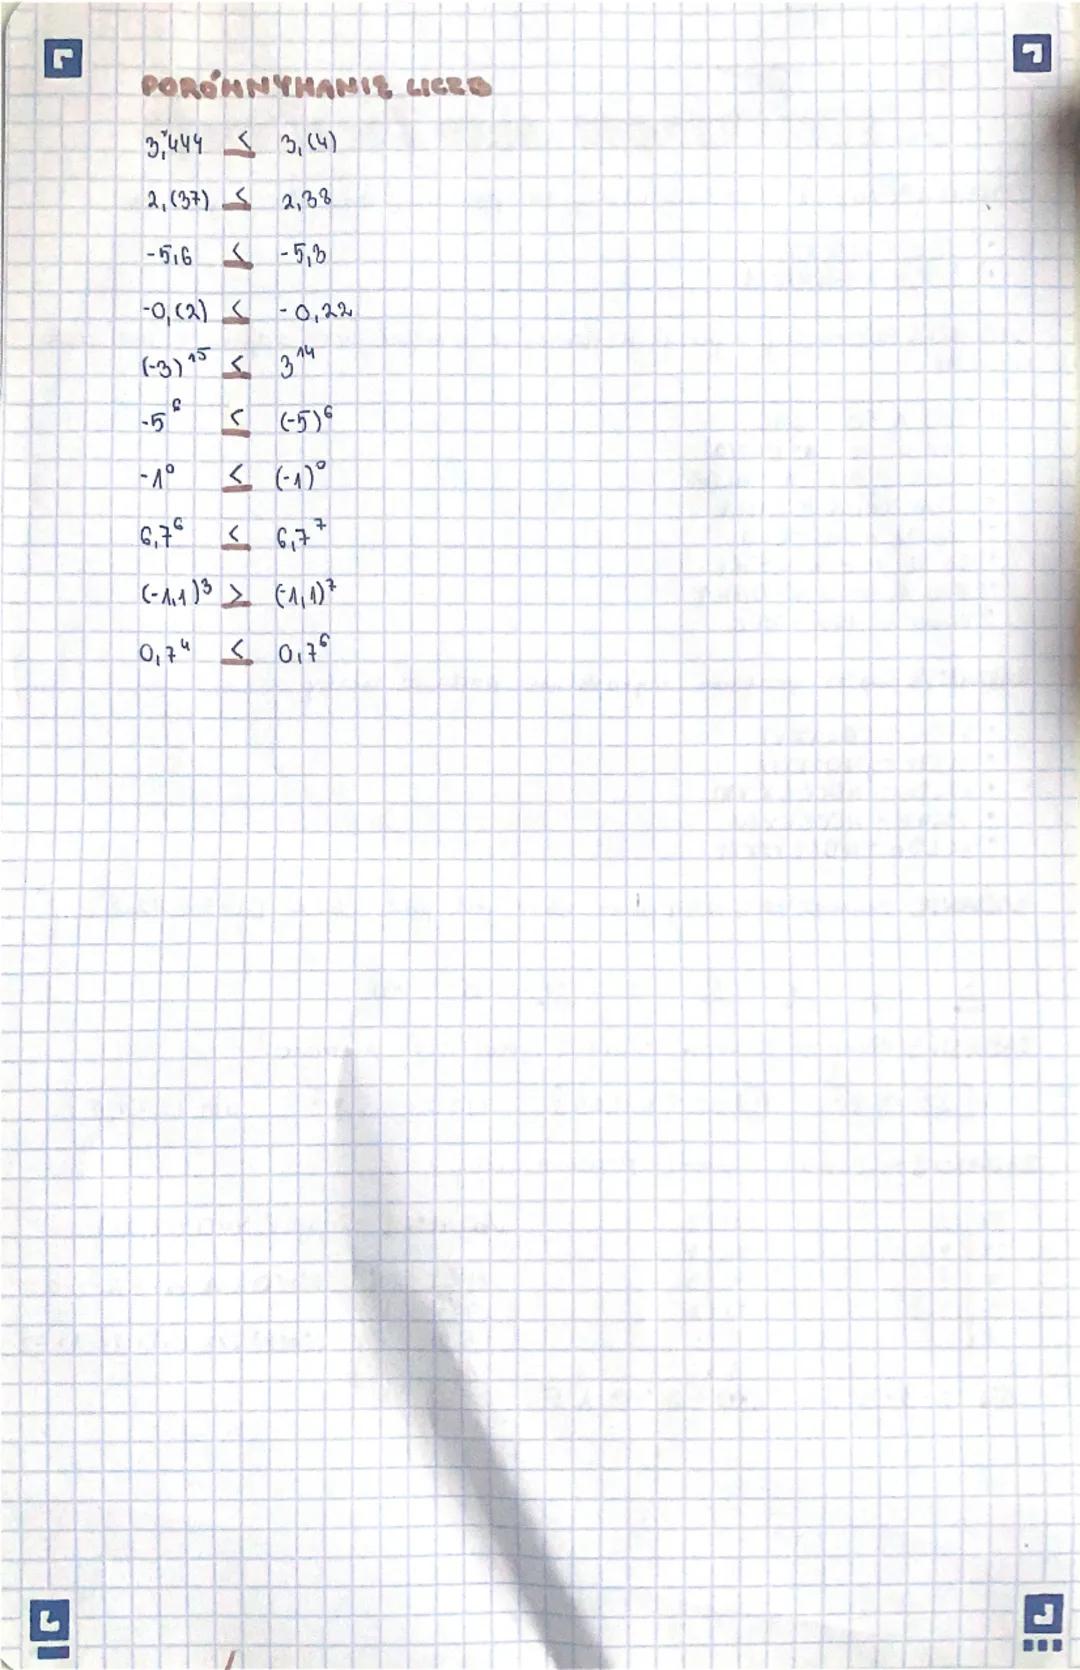 PORÓWNYWANIE LICZB
3,444 < 3,(4)
2,(37) < 2,38
-5,6 < -5,3
-0,(2) < -0,22
(-3)¹⁵ < 3¹⁴
-5⁶ < (-5)⁶
-1⁰ < (-1)⁰
6,7⁶ < 6,7⁷
(-1,1)³ > (-1,1)⁷
0,7⁴ < 0,7⁶